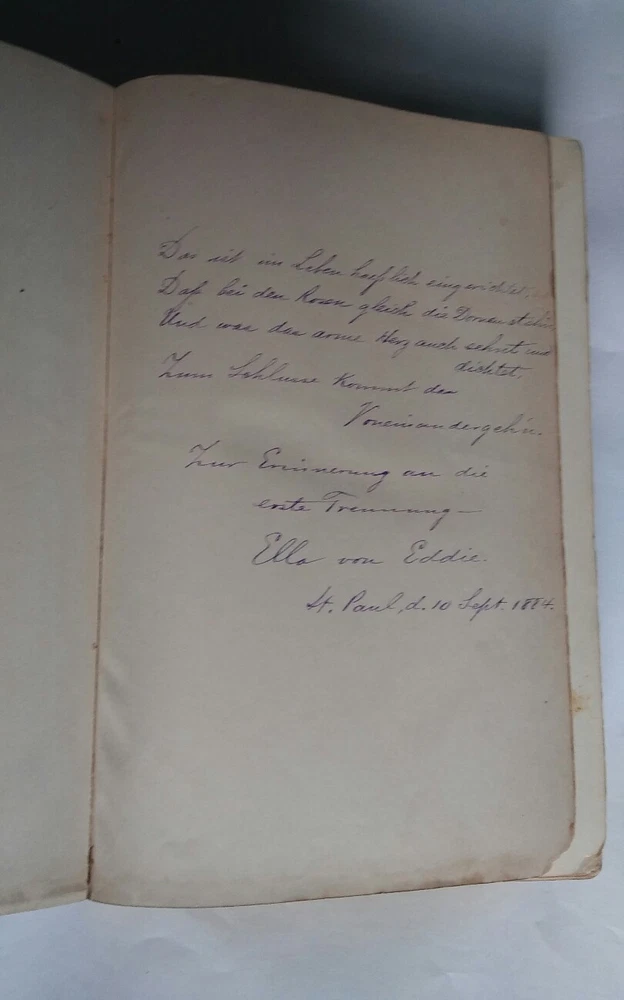 Das ist im Leben haeßlich eingerichtet,
Daß bei den Rosen gleich die Dornen steh'n
Und was das arme Herz auch sehnt und
dichtet.
Zum Schlusse kommt das
Voneinandergeh'n.
Zur Erinnerung an die
erste Trennung—
Ella von Eddie.
St. Paul, d. 10 Sept. 1884.